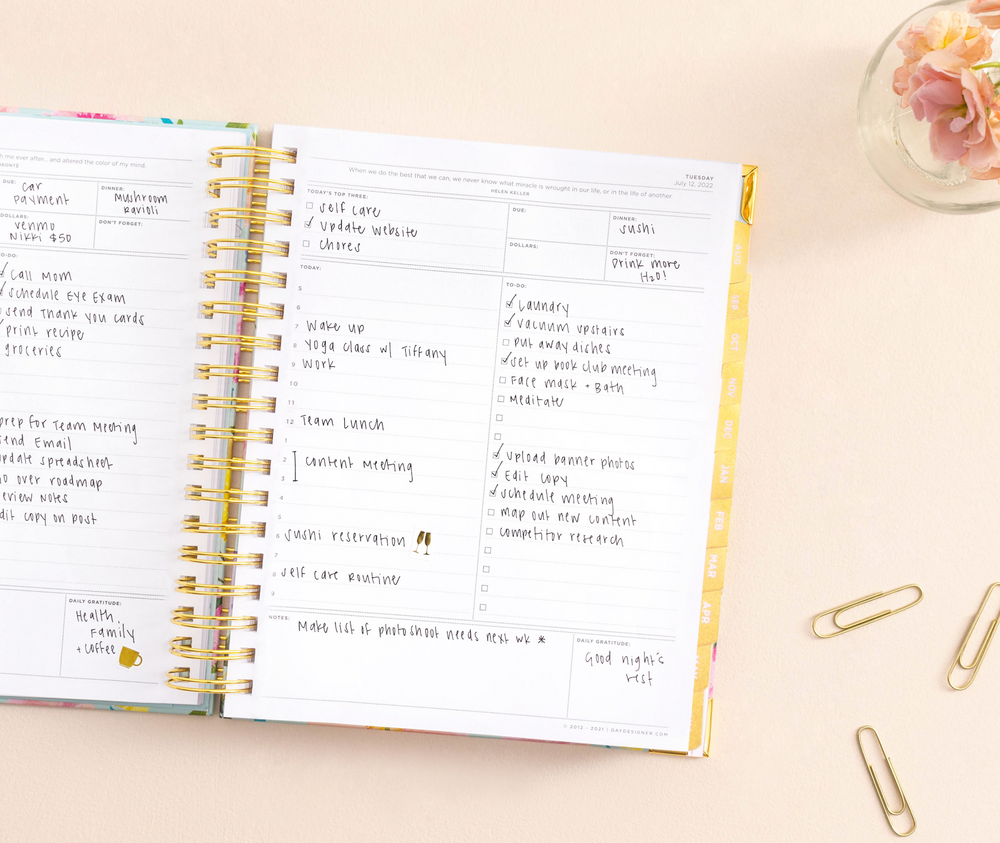 h me ever after... and altered the color of my mind.
DUE:
car
payment
DINNER:
mushroom
ravioli
DOLLARS:
venmo
Nikki $50
DON'T FORGET:
O-DO:
Call Mom
schedule Eye Exam
send thank you cards
print recipe
groceries
prep for Team Meeting
send Email
update spreadsheet
go over roadmap
review notes
edit copy on post
DAILY GRATITUDE:
Health,
Family
+ coffee
When we do the best that we can, we never know what miracle is wrought in our life, or in the life of another
HELEN KELLER
TUESDAY
July 12, 2022
TODAY'S TOP THREE:
self care
update website
chores
DUE:
DINNER:
sushi
DOLLARS:
DON'T FORGET:
Drink more
H2O!
TODAY:
5
6
7 Wake up
8 yoga class w/ Tiffany
9 work
10
11
12 Team Lunch
1
2 content Meeting
3
4
5
6 sushi reservation
7
8 self care routine
9
TO-DO:
Laundry
vacuum upstairs
put away dishes
set up book club meeting
Face mask + Bath
Meditate
upload banner photos
Edit copy
schedule meeting
map out new content
competitor research
NOTES:
Make list of photoshoot needs next wk *
DAILY GRATITUDE:
Good night's
rest
© 2012 - 2021 | DAYDESIGNER.COM
AUG
SEP
OCT
NOV
DEC
JAN
FEB
MAR
APR